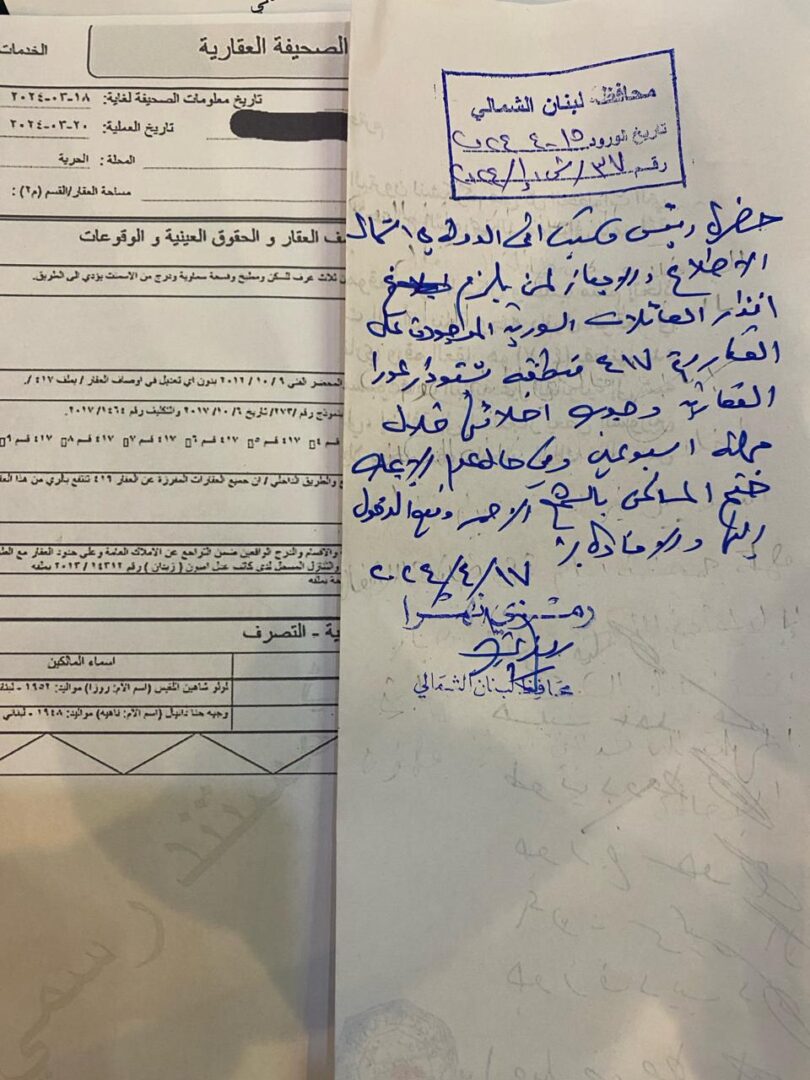 الصحيفة العقارية
الخدمات
تاريخ معلومات الصحيفة لغاية: ١٨-٠٣-٢٠٢٤
تاريخ العملية: ٢٠-٠٣-٢٠٢٤
المحلة: الحرية
مساحة العقار/القسم (م٢) :
ف العقار و الحقوق العينية و الوقوعات
ثلاث غرف للسكن ومطبخ وفسحة سماوية ودرج من الاسمنت يؤدي الى الطريق.
المحضر الفني ٩ / ١٠ / ٢٠١٢ بدون اي تعديل في اوصاف العقار / بملف ٤١٧ /.
نموذج رقم /٢٧٣/ تاريخ ٦ /١٠ /٢٠١٧ والتكليف رقم ١٤٦٤ /٢٠١٧.
قسم ٤ ٤١٧ قسم ٥ ٤١٧ قسم ٦ ٤١٧ قسم ٧ ٤١٧ قسم ٨ ٤١٧ قسم ٩
والطريق الداخلي / ان جميع العقارات المفرزة عن العقار ٤١٩ تنتفع بالري من هذا
والاقسام والدرج الواقعين ضمن التراجع عن الاملاك العامة وعلى حدود العقار مع
والتنازل المسجل لدى كاتب عدل اميون ( زيدان ) رقم ١٤٣١٢ / ٢٠١٣ بملفه
بملفه
ية - التصرف
اسماء المالكين
لولو شاهين اللقيس (اسم الأم: روزا) مواليد: ١٩٥٢ -
وجيه حنا دانيال (اسم الأم: ناهيه) مواليد: ١٩٤٨ - لبناني
محافظة لبنان الشمالي
تاريخ الورود ١٥-٤-٢٠٢٤
رقم ٣٧/ش.إ/٢٠٢٤
حضرة رئيس مكتب امن الدولة في الشمال
الاطلاع والايعاز لمن يلزم
انذار العائلات السورية الموجودة على
العقار رقم ٤١٧ منطقة
العقارية وجوب اخلائها خلال
مهلة اسبوعين وفي حال عدم
ختم المساكن بالشمع الاحمر ومنع الدخول
إليها والافادة
٢٠٢٤/٤/١٧
رمزي نهرا
محافظ لبنان الشمالي